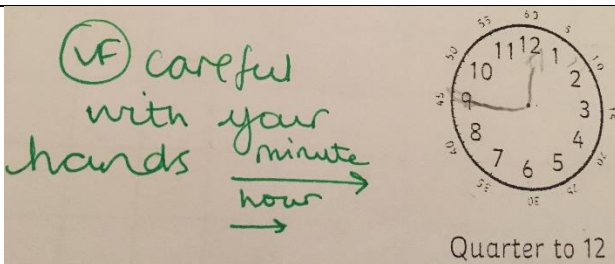 VF careful
with your
hands
minute
hour
60
55 5
50 10
45
40 20
35 25
30
11 12 1
10 2
9 3
8 4
7 6 5
Quarter to 12